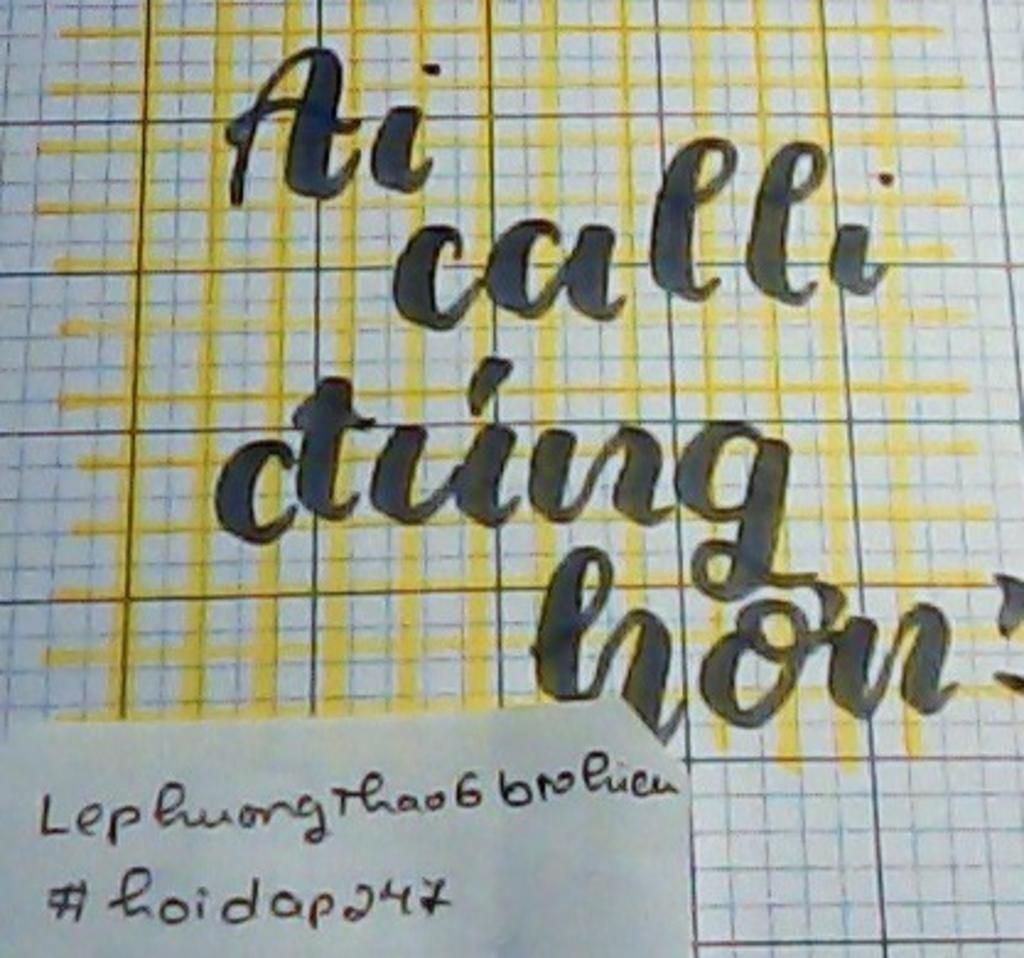 Ai
calli
đúng
hơn?
LephuongThao6 brohieu
#hoidap247